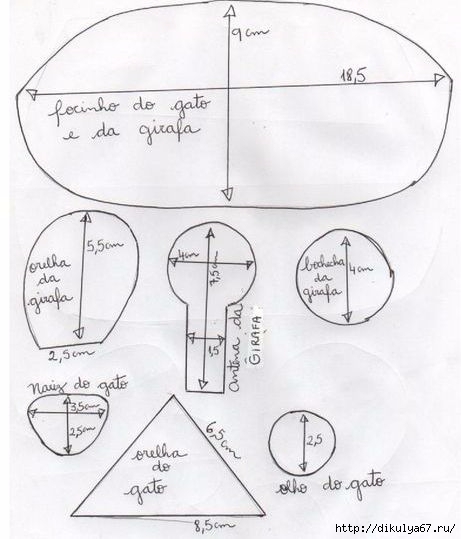 9 cm
18,5
focinho do gato
e da girafa
5,5cm
orelha
da
girafa
2,5cm
4cm
7,5cm
1,5
antena da
GIRAFA
bochecha
da
girafa
4cm
Nariz do gato
3,5cm
2,5cm
orelha
do
gato
6,5cm
8,5cm
2,5
olho do gato
http://dikulya67.ru/